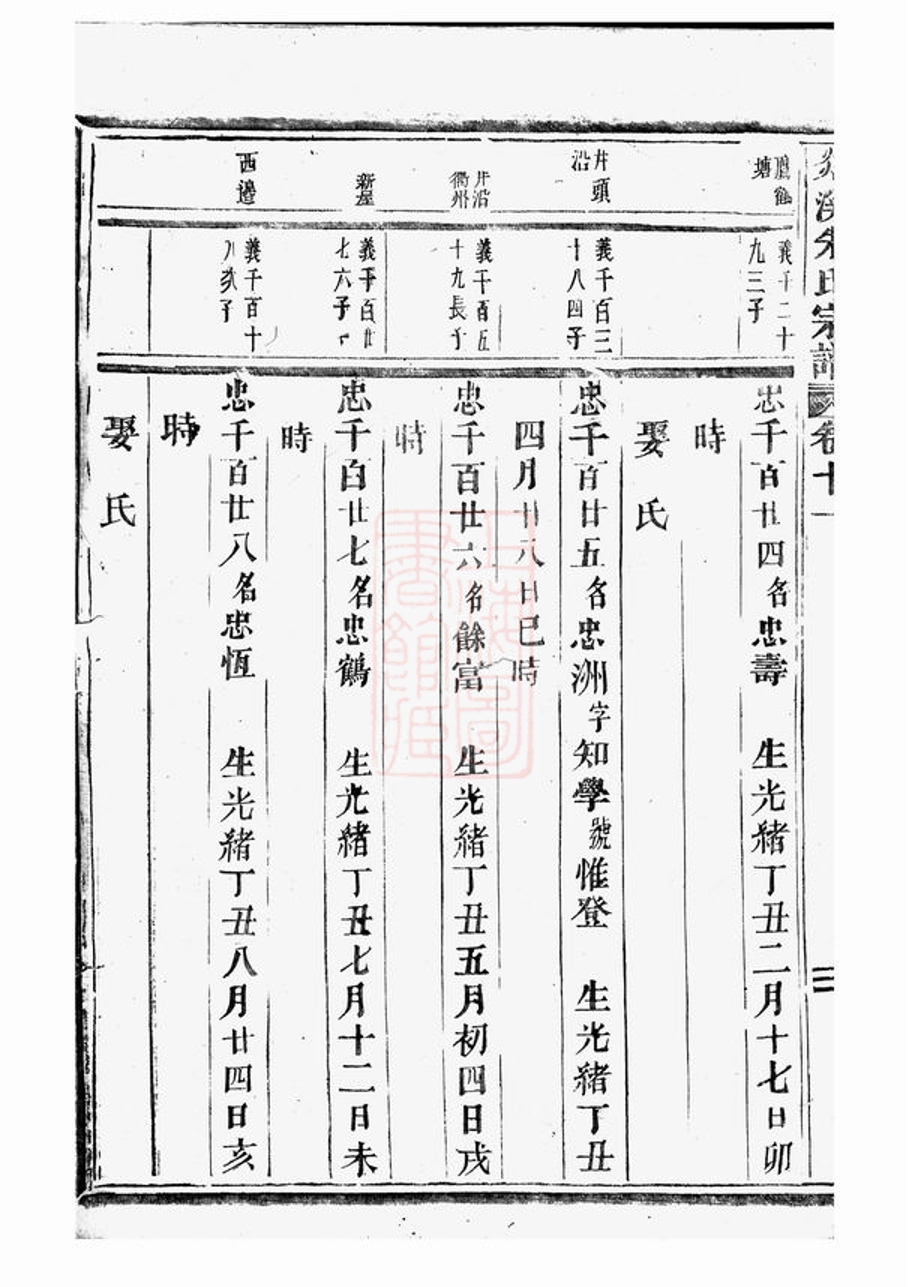 溪朱氏宗譜
卷十一
塘
義千二十
九三子
忠千百廿四名忠壽 生光緒丁丑二月十七日卯
時
娶氏
井頭
沿
義千百三
十八四子
忠千百廿五名忠洲字知學號惟登 生光緒丁丑
四月廿八日巳時
井沿
衢州
義千百五
十九長子
忠千百廿六名餘富 生光緒丁丑五月初四日戌
時
新屋
義千百廿
七六子
忠千百廿七名忠鶴 生光緒丁丑七月十二日未
時
西邊
義千百十
八次子
忠千百廿八名忠恆 生光緒丁丑八月廿四日亥
時
娶氏
上海圖
書館藏